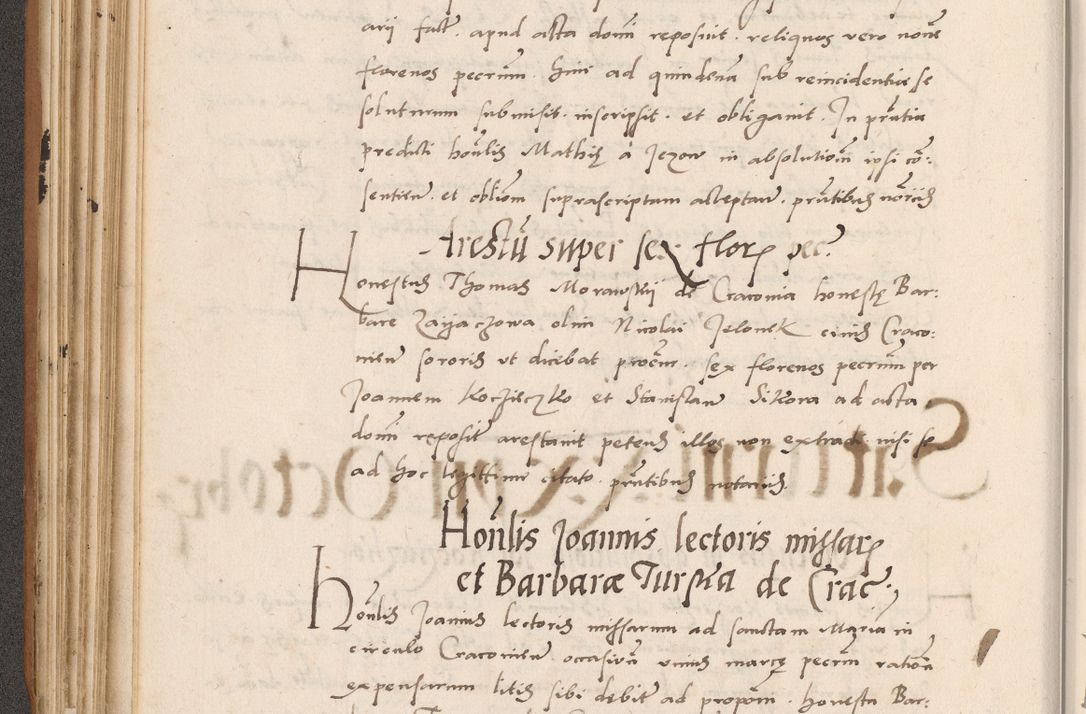 arij fact. apud acta domi reposuit. reliquos vero none
florenos pecunn. hinc ad quindenã sub reincidentia se
soluturum submisit. inscripsit. et obligavit. In prñtia
predicti hoñlis Mathię à Jezow in absolutioñ ipsi cõ:
sentien. et obliom suprascriptam acceptan. prñtibus notarijs
Arestũ super sex flor pec.
Honestus Thomas Morawskij de Craconia honestę Bar:
bare Zaijaczowa olim Nicolai Jelonek civis Craco:
nien sororis ut dicebat procur. sex florenos pecunn per
Joannem Koczisczko et Stanislaũ Sikora ad acta
domi reposit arestavit petens illos non extradi. nisi se
ad hoc legittime citato. prñtibus notarijs.
Hoñlis Joannis lectoris missar
et Barbaræ Turska de Crac.
Hoñlis Joannis lectoris missarum ad sanctam Mariã in
circulo Craconien occasioñ unius marcę pecunn ratioñ
expensarum litis sibi debit ad propoñ. honesta Bar: